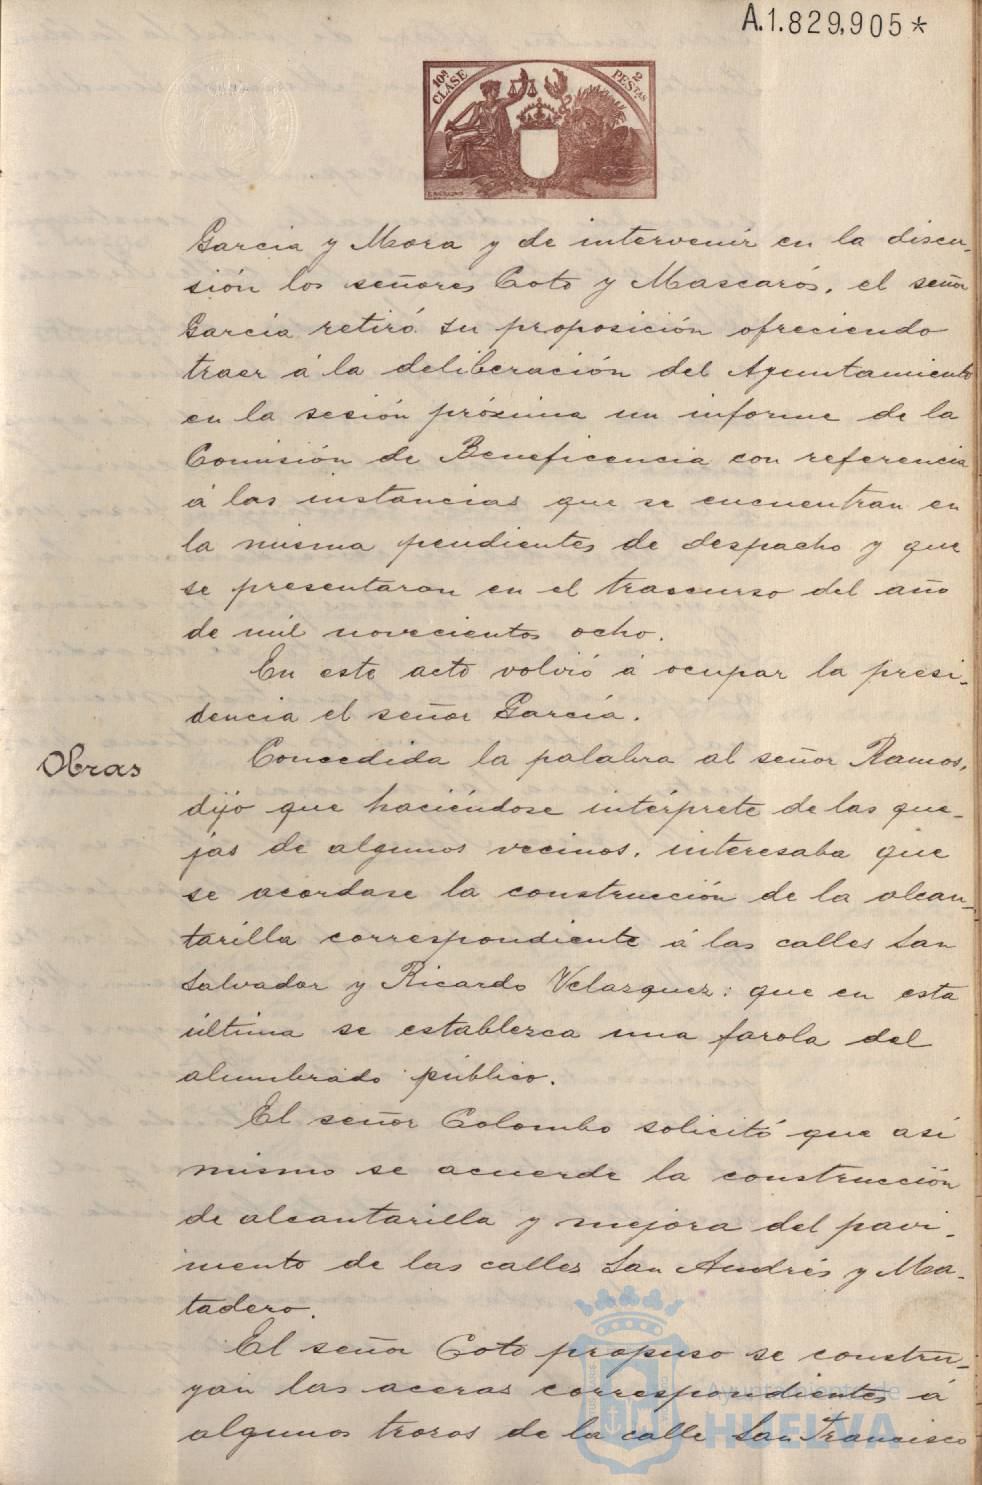 A.1.829,905*
10ª CLASE
2 PESTAS
Garcia y Mora y de intervenir en la discu-
sión los señores Coto y Mascarós, el señor
Garcia retiró su proposición ofreciendo
traer á la deliberación del Ayuntamiento
en la sesión próxima un informe de la
Comisión de Beneficencia con referencia
á las instancias que se encuentran en
la misma pendientes de despacho y que
se presentaron en el trascurso del año
de mil novecientos ocho.
En este acto volvió á ocupar la presi-
dencia el señor Garcia.
Obras
Concedida la palabra al señor Ramos,
dijo que haciéndose intérprete de las que-
jas de algunos vecinos, interesaba que
se acordase la construcción de la alcan-
tarilla correspondiente á las calles San
Salvador y Ricardo Velazquez: que en esta
última se establezca una farola del
alumbrado público.
El señor Colombo solicitó que así
mismo se acuerde la construcción
de alcantarilla y mejora del pavi-
mento de las calles San Andrés y Ma-
tadero.
El señor Coto propuso se constru-
yan las aceras correspondientes á
algunos trozos de la calle San Francisco
Ayuntamiento de
HUELVA